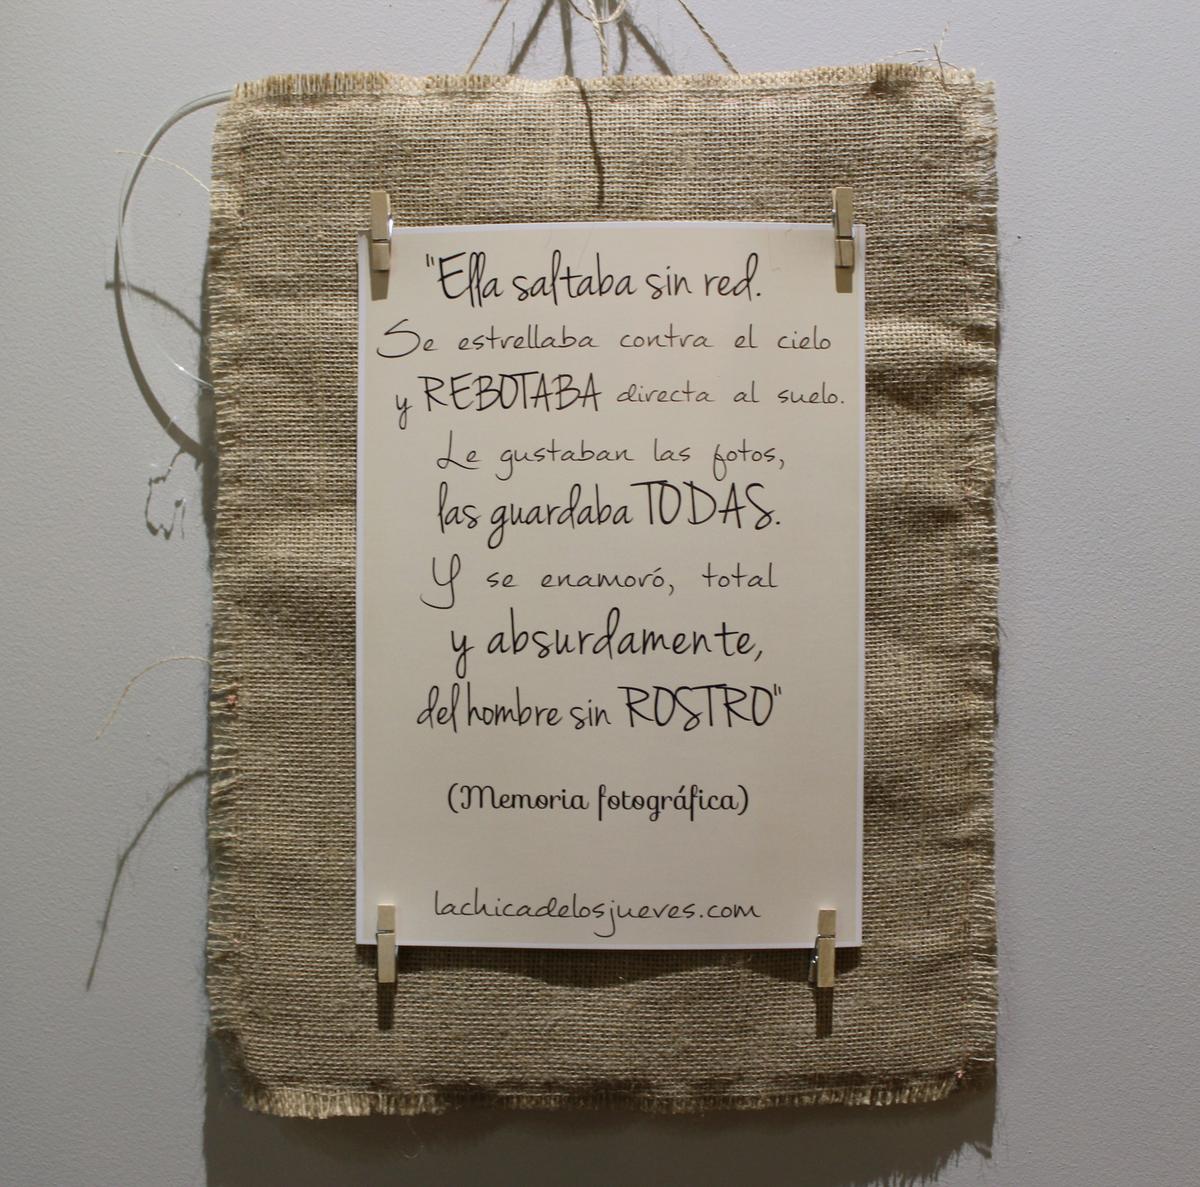 "Ella saltaba sin red.
Se estrellaba contra el cielo
y REBOTABA directa al suelo.
Le gustaban las fotos,
las guardaba TODAS.
Y se enamoró, total
y absurdamente,
del hombre sin ROSTRO"
(Memoria fotográfica)
lachicadelosjueves.com